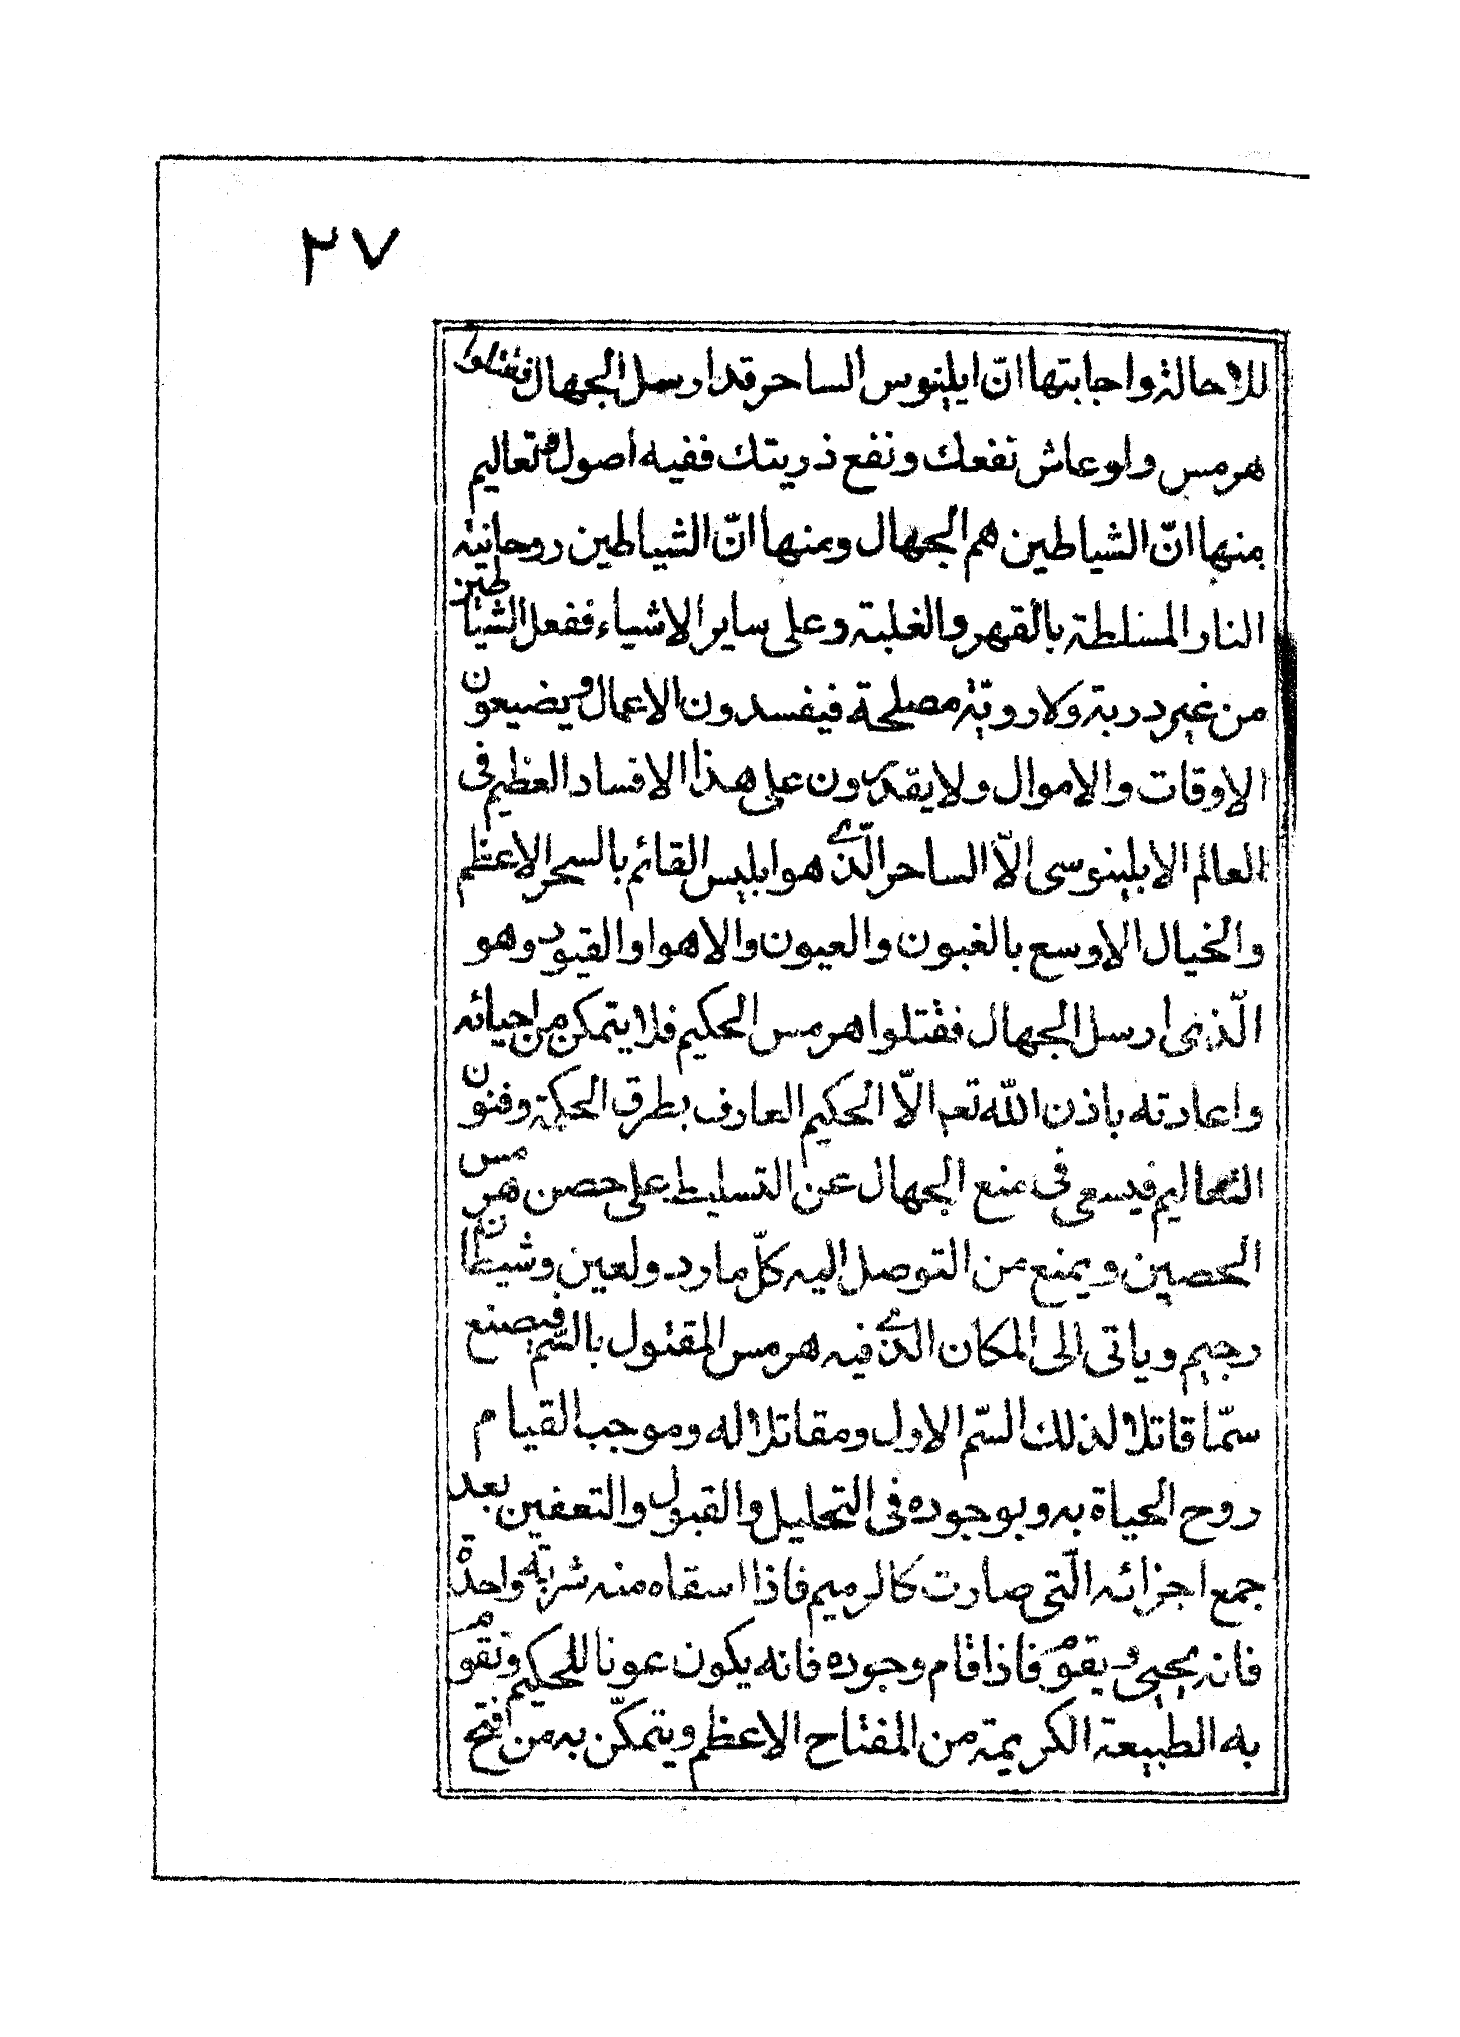 ٢٧
للاحالة واجابتها انّ ايلينوس الساحر قد ارسل الجهال فقتلوا
هرمس ولو عاش نفعك ونفع ذريتك ففيه اصول وتعاليم
منها انّ الشياطين هم الجهال ومنها انّ الشياطين روحانية
النار المسلطة بالقهر والغلبة وعلى ساير الاشياء ففعل الشياطين
من غير دربة ولا روية مصلحة فيفسدون الاعمال ويضيعون
الاوقات والاموال ولا يقدرون على هذا الافساد العظيم في
العالم الايلينوسى الّا الساحر الّذى هو ابليس القائم بالسحر الاعظم
والخيال الاوسع بالغبون والعيون والاهوا والقيود وهو
الّذى ارسل الجهال فقتلوا هرمس الحكيم فلا يتمكن من احيائه
واعادته باذن الله تعم الّا الحكيم العارف بطرق الحكمة وفنون
التعاليم فيسعى فى منع الجهال عن التسليط على حصن هرمس
الحصين ويمنع من التوصل اليه كلّ مارد ولعين وشيطان
رجيم وياتى الى المكان الذى فيه هرمس المقتول بالسّم فيصنع
سمّا قاتلا لذلك السّم الاول ومقاتلا له وموجب القيام
روح الحياة به وبوجوده فى التحليل والقبول والتعفين بعد
جمع اجزائه الّتى صارت كالرميم فاذا اسقاه منه شربة واحدة
فانه يحيى ويقوم فاذا قام وجوده فانه يكون عونا للحكيم وتقوم
به الطبيعة الكريمة من المفتاح الاعظم ويتمكّن به من فتح